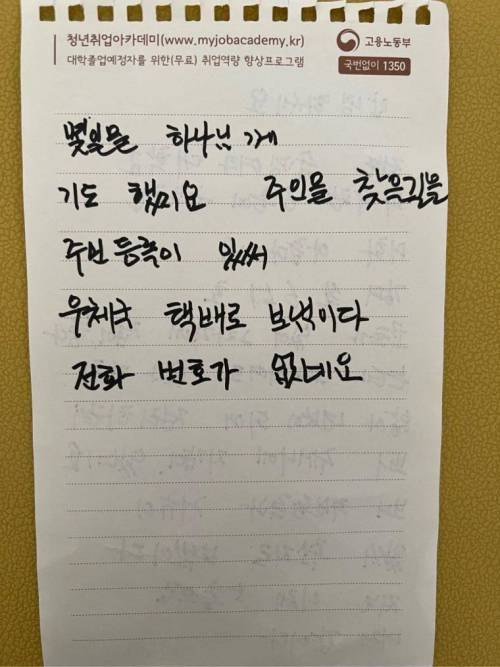 청년취업아카데미(www.myjobacademy.kr)
대학졸업예정자를 위한(무료) 취업역량 향상프로그램
고용노동부
국번없이 1350
몇일믈 하나님 게
기도 했미요 주인믈 찾은길믈
주번등륵이 있써
우체국 택배로 보냄이다
전화 번호가 없네요